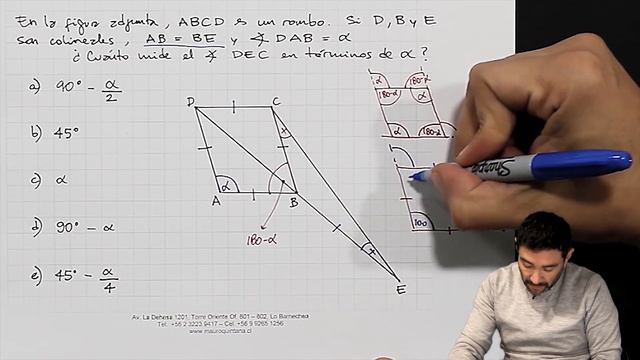 En la figura adjunta, ABCD es un rombo. Si D, B y E
son colineales, AB = BE y ∡ DAB = α
¿ Cuánto mide el ∡ DEC en términos de α ?
a) 90° - α/2
b) 45°
c) α
d) 90° - α
e) 45° - α/4
D
C
A
B
E
α
x
x
180-α
α
180-α
180-α
α
α
180-α
100
Sharpie
Av. La Dehesa 1201, Torre Oriente Of. 601 – 602, Lo Barnechea
Tel. +56 2 3223 9417 – Cel. +56 9 9265 1256
www.mauroquintana.cl